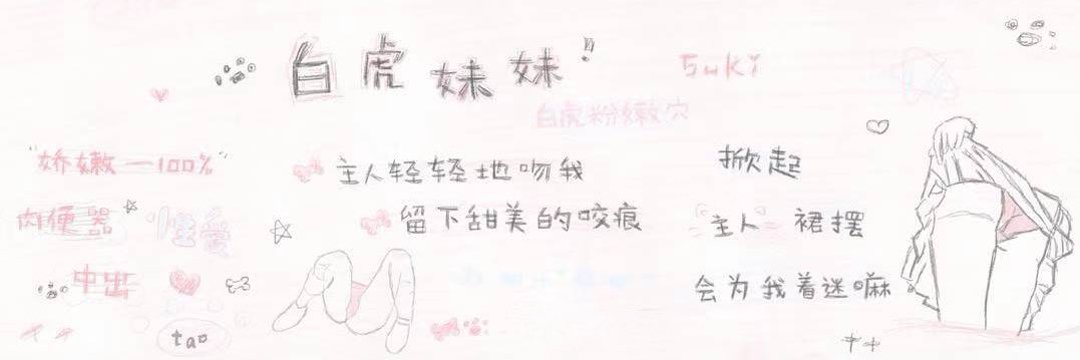 白虎妹妹!
Suki
白虎粉嫩穴
"娇嫩—100%"
主人轻轻地吻我
掀起
肉便器
性爱
留下甜美的咬痕
"主人"裙摆
中出
会为我着迷嘛
tao